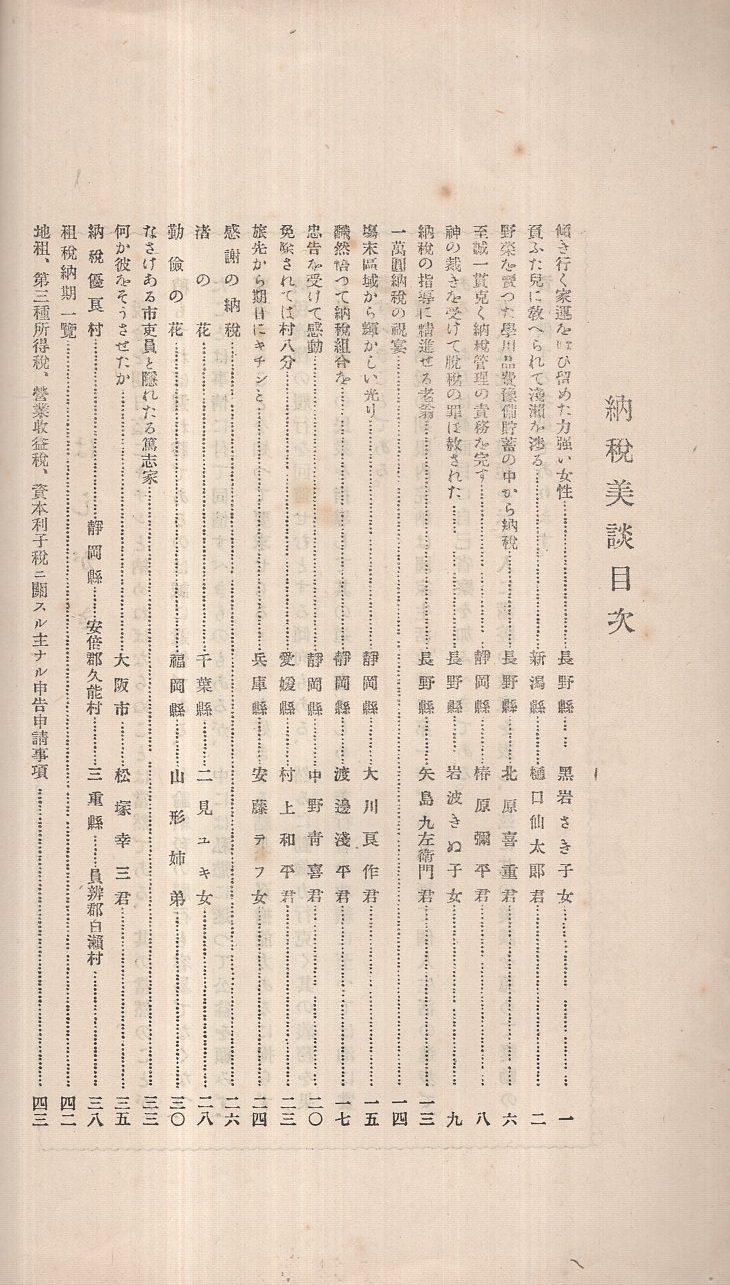 納稅美談目次
傾き行く家運を呼び留めた力强い女性……長野縣……黑岩さき子女……一
負ふた兒に敎へられて淺瀨を渉る……新潟縣……樋口仙太郞君……二
野菜を賣つた學用品費豫備貯蓄の中から納稅……長野縣……北原喜重君……六
至誠一貫克く納稅管理の責務を完す……靜岡縣……榛原彌平君……八
神の裁きを受けて脫稅の罪は赦された……長野縣……岩波きぬ子女……九
納稅の指導に精進せる老翁……長野縣……矢島九左衞門君……一三
一萬圓納稅の祝宴……一四
塲末區域から輝かしい光り……靜岡縣……大川良作君……一五
飜然悟つて納稅組合を……靜岡縣……渡邊淺平君……一七
忠吿を受けて感動……靜岡縣……中野靑喜君……二〇
免除されては村八分……愛媛縣……村上和平君……二三
旅先から期日にキチンと……兵庫縣……安藤テフ女……二四
感謝の納稅……二六
渚の花……千葉縣……二見ユキ女……二八
勤儉の花……福岡縣……山形姉弟……三〇
なさけある市吏員と隱れたる篤志家……三三
何が彼をそうさせたか……大阪市……松塚幸三君……三五
納稅優良村……靜岡縣……安倍郡久能村……三重縣……員辨郡白瀨村……三八
租稅納期一覽……四二
地租、第三種所得稅、營業收益稅、資本利子稅ニ關スル主ナル申吿申請事項……四三